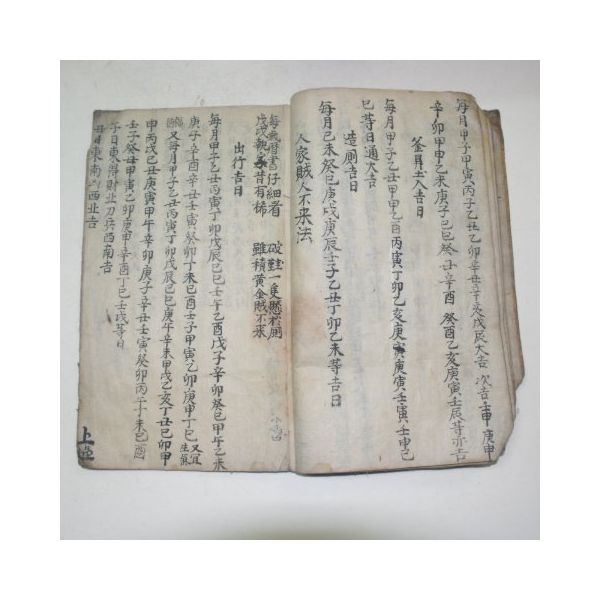 每月甲子甲寅丙子乙丑乙卯辛丑辛亥戊辰大吉 次吉壬申庚申
辛卯甲申乙未庚子己巳癸丑辛酉 癸酉乙亥庚寅壬辰等亦吉
釜鼎土入吉日
每月甲子乙丑甲申乙酉丙寅丁卯乙亥庚寅庚寅壬寅壬申己
巳等日通大吉
造厠吉日
每月己未癸巳庚戌庚辰壬子乙丑丁卯乙未等吉日
人家賊人不来法
每歲曆書仔細看 破鞋一隻懸於厠
戊戌 昔有稀 雖積黄金賊不来
出行吉日
每月甲子乙丑丙寅丁卯戊辰己巳壬午乙酉戊子辛卯癸巳甲午乙未
庚子辛酉辛丑壬寅癸卯丁未己酉壬子甲寅乙卯庚申丁巳又宜
又每月甲子乙丑丙寅丁卯戊辰己巳庚午辛未甲戌乙亥丁丑己卯甲
申丙戌己丑庚寅甲午辛卯庚子辛丑壬寅癸卯丙午丁未己酉
壬子癸丑甲寅乙卯庚申辛酉丁巳壬戌等日
子日東得財北刀兵西南吉
丑日東南 西北吉
上